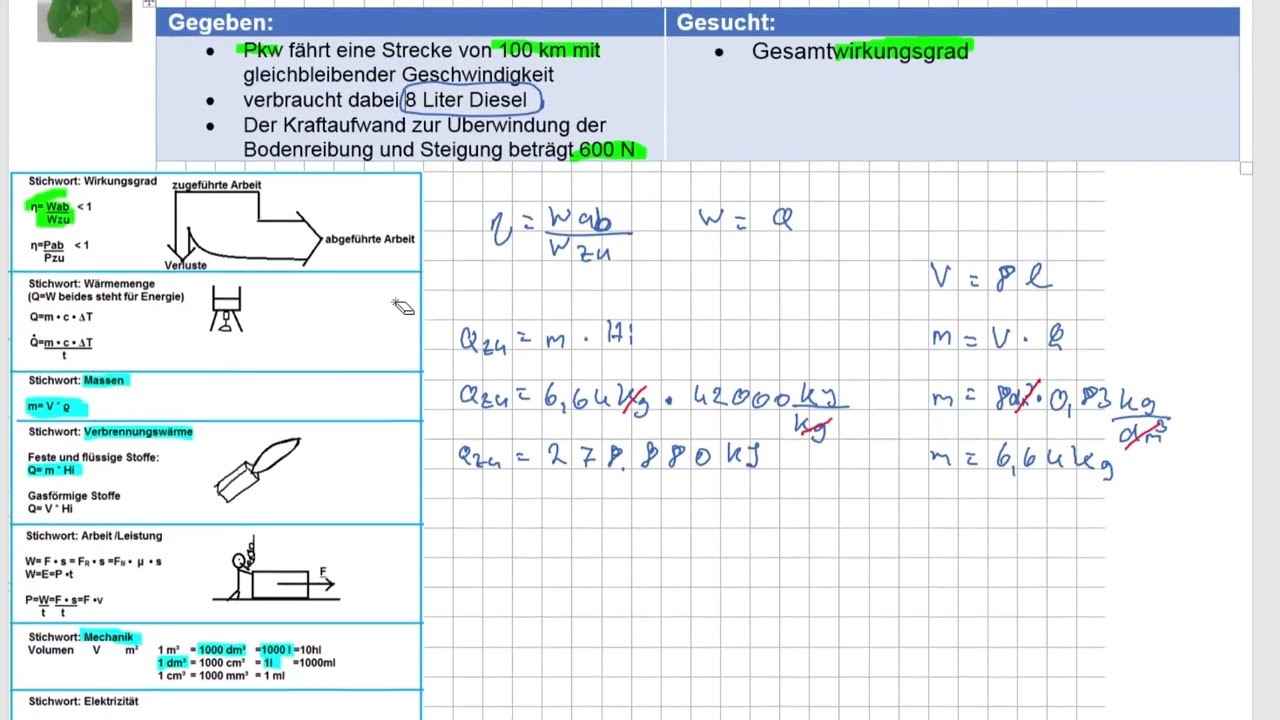 Gegeben:
Gesucht:
• Pkw fährt eine Strecke von 100 km mit
gleichbleibender Geschwindigkeit
• verbraucht dabei 8 Liter Diesel
• Der Kraftaufwand zur Überwindung der
Bodenreibung und Steigung beträgt 600 N
• Gesamtwirkungsgrad
Stichwort: Wirkungsgrad
zugeführte Arbeit
η= Wab < 1
Wzu
abgeführte Arbeit
η=Pab < 1
Pzu
Verluste
Stichwort: Wärmemenge
(Q=W beides steht für Energie)
Q=m • c • ΔT
Q̇=m • c • ΔT
t
Stichwort: Massen
m= V * ϱ
Stichwort: Verbrennungswärme
Feste und flüssige Stoffe:
Q= m * Hi
Gasförmige Stoffe
Q= V * Hi
Stichwort: Arbeit /Leistung
W= F • s = FR • s =FN • μ • s
W=E=P •t
F
P=W=F • s=F •v
t t
Stichwort: Mechanik
Volumen V m³ 1 m³ = 1000 dm³ =1000 l =10hl
1 dm³ = 1000 cm³ = 1l =1000ml
1 cm³ = 1000 mm³ = 1 ml
Stichwort: Elektrizität
η = Wab W = Q
Wzu
V = 8 l
Qzu = m · Hi
m = V · ϱ
Qzu = 6,64 kg · 42000 kJ
kg
m = 8 dm³ · 0,83 kg
dm³
Qzu = 278.880 kJ
m = 6,64 kg